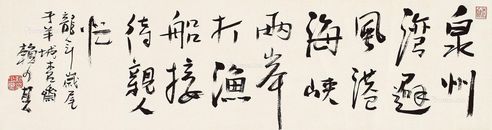 泉州
湾避
风港
海峡
两岸
打渔
船接
待亲人
忙
龙年岁尾
于羊城杏斋